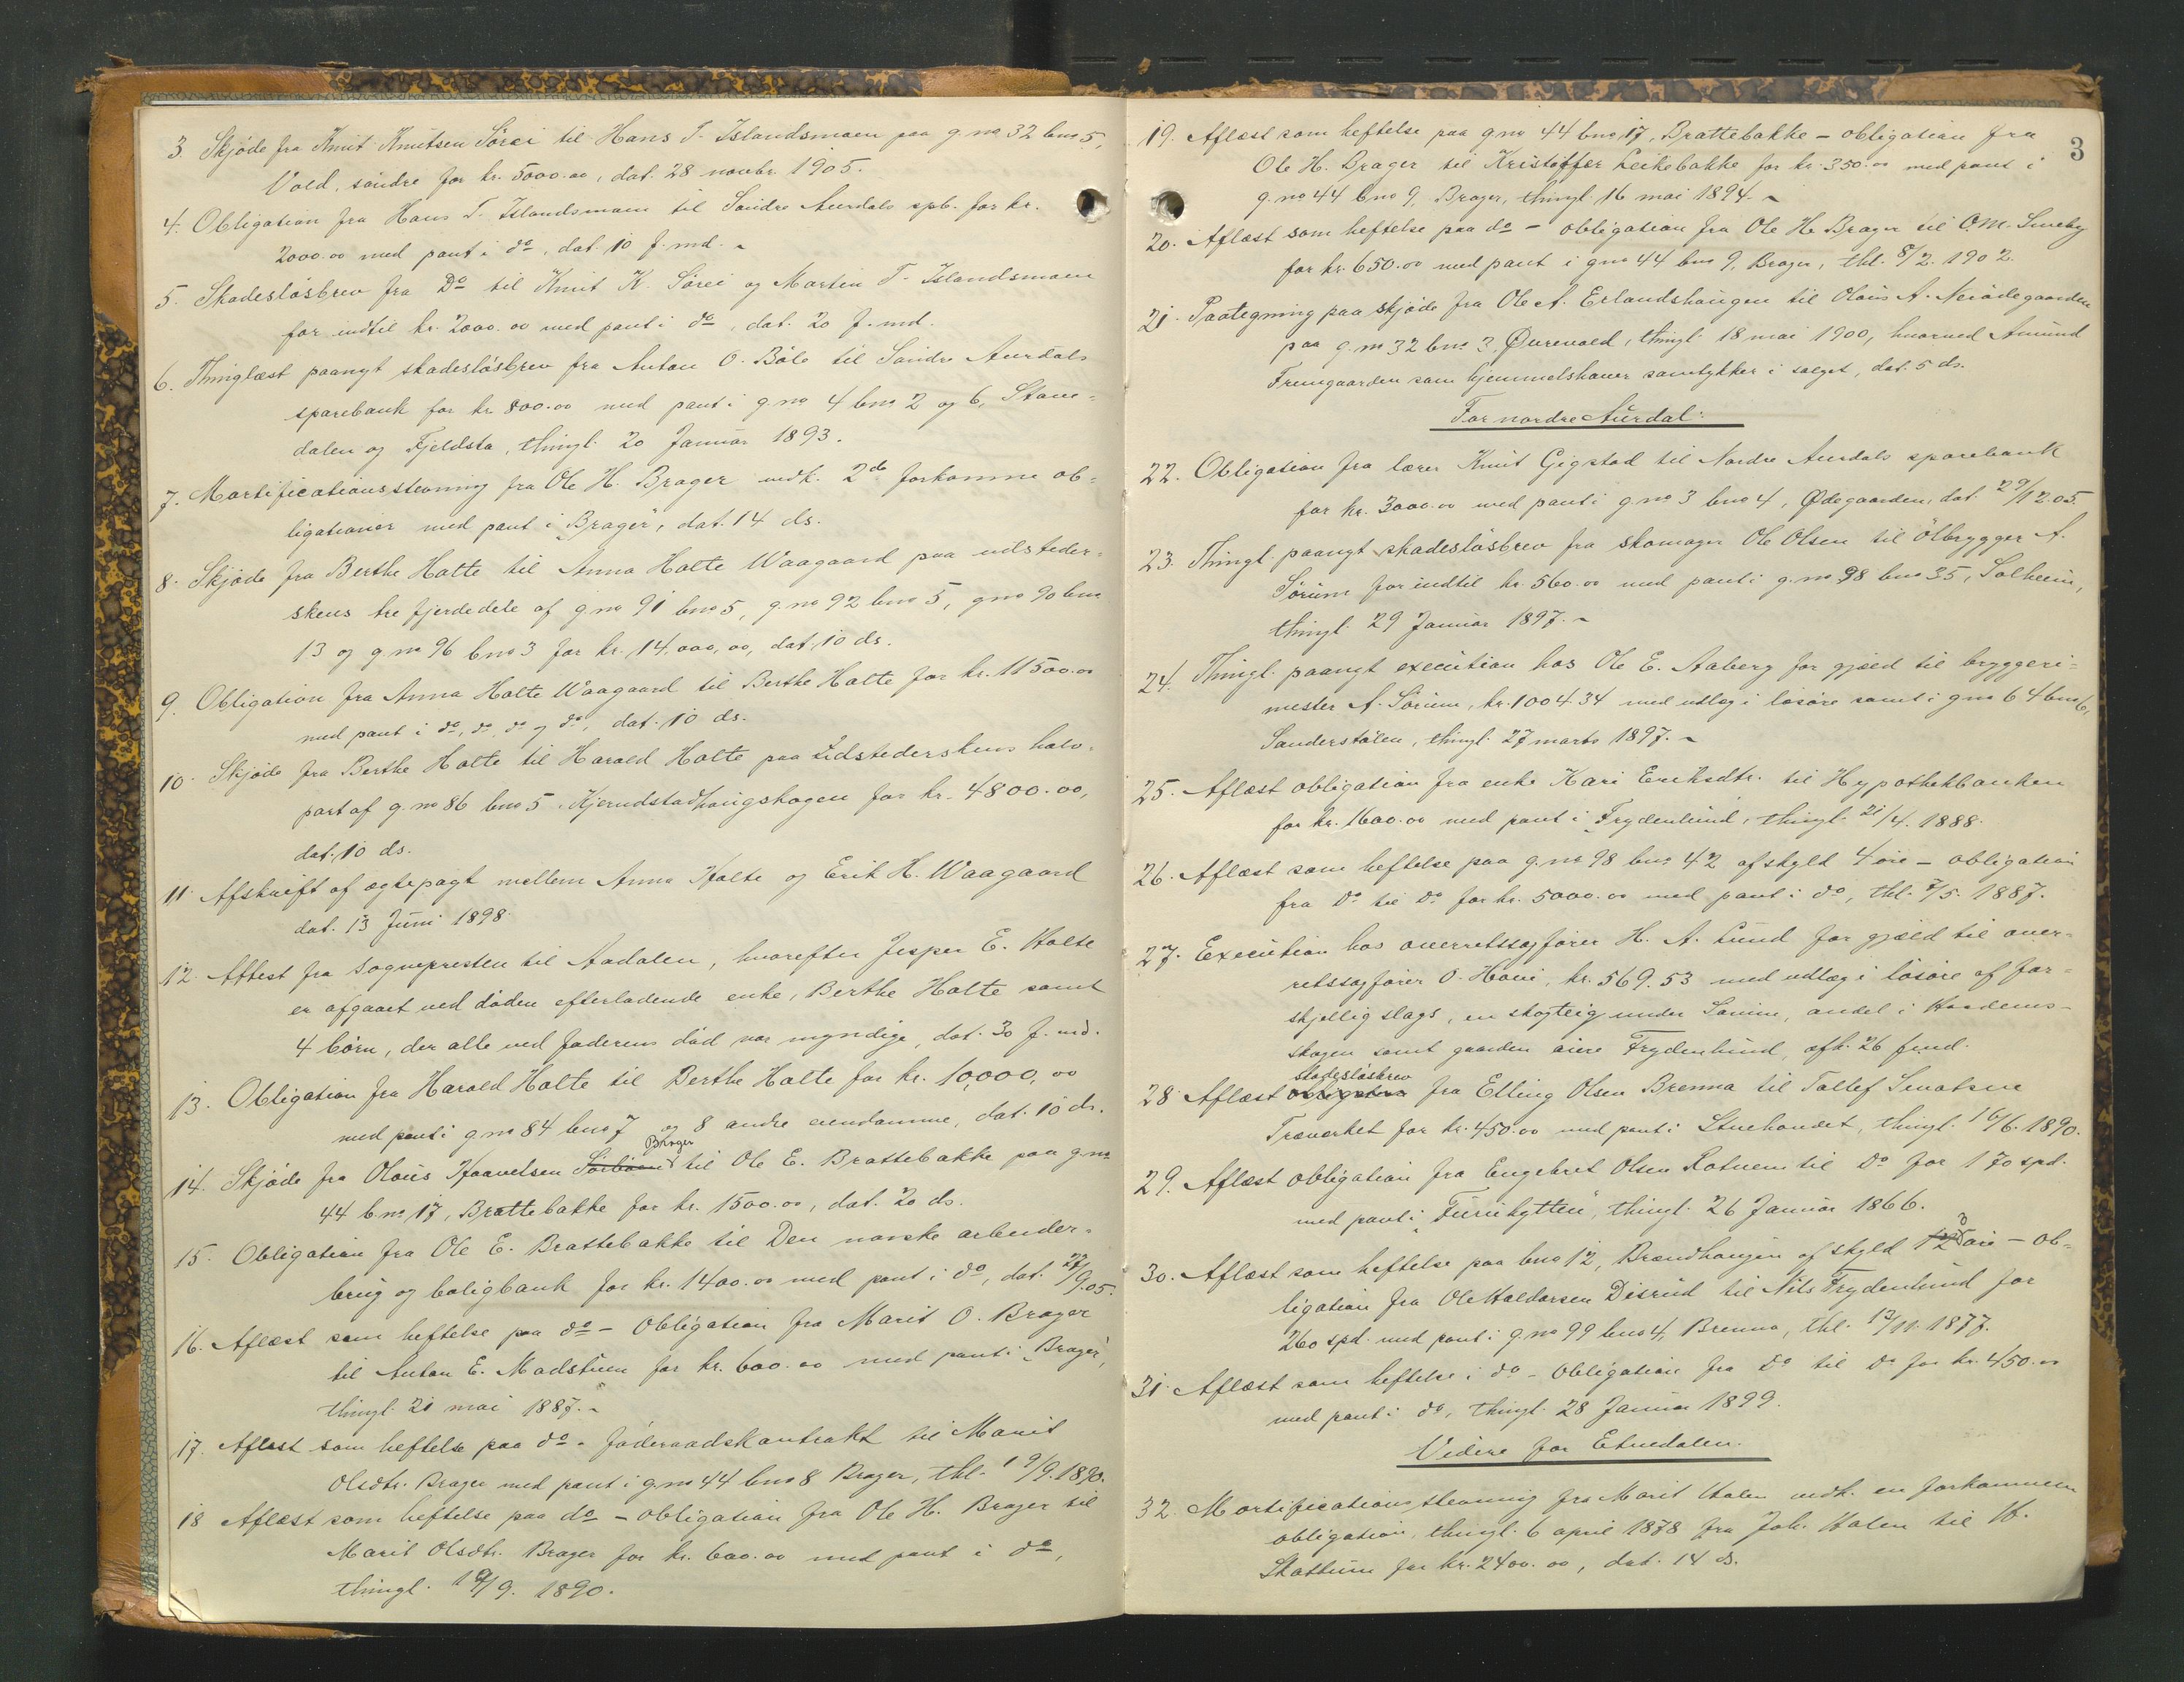 3. Skjøde fra Knut Knutsen Sørei til Hans T. Islandsmoen paa g. no 32 bno 5,
Vold, søndre for kr. 5000.00, dat. 28 novbr. 1905.
4. Obligation fra Hans T. Islandsmoen til Søndre Aurdals spb. for kr.
2000.00 med pant i do, dat. 10 f. md.
5. Skadesløsbrev fra Do til Knut K. Sørei og Martin T. Islandsmoen
for indtil kr. 2000.00 med pant i do, dat. 20 f. md.
6. Thinglæst paanyt skadesløsbrev fra Anton O. Bøle til Søndre Aurdals
sparebank for kr. 800.00 med pant i g. no 4 bno 2 og 6,
dalen og Fjeldsta, thingl. 20 Januar 1893.
7. Mortificationsstevning fra Ole H. Brager vedk. 2de forkomne ob-
ligationer med pant i "Brager", dat. 14 ds.
8. Skjøde fra Berthe Holte til Anna Holte Waagaard paa udsteder-
skens tre fjerdedele af g. no 91 bno 5, g. no 92 bno 5, gno 90 bno
13 og g. no 96 bno 3 for kr. 14.000,00, dat. 10 ds.
9. Obligation fra Anna Holte Waagaard til Berthe Holte for kr. 11500.00
med pant i do, do, do og do, dat. 10 ds.
10. Skjøde fra Berthe Holte til Harald Holte paa udstederskens halv-
part af g. no 86 bno 5 Kjerndstadhaugskogen for kr. 4800.00,
dat. 10 ds.
11. Afskrift af ægtepagt mellem Anna Holte og Erik H. Waagaard
dat. 13 Juni 1898.
12. Attest fra sognepresten til Aadalen, hvorefter Jesper E. Holte
er afgaaet ved døden efterladende enke, Berthe Holte samt
4 børn, der alle ved faderens død var myndige, dat. 30 f. md.
13. Obligation fra Harald Holte til Berthe Holte for kr. 10,000,00
med pant i g no 84 bno 7 og 8 andre eiendomme, dat. 10 ds.
Brager
14. Skjøde fra Olaus Haavelsen til Ole E. Brattebakke paa g. no
44 bno 17, Brattebakke for kr. 1500.00, dat. 20 ds.
15. Obligation fra Ole E. Brattebakke til Den norske arbeider-
brug og boligbank for kr. 1400.00 med pant i do, dat. 27/9.05.
16. Aflæst som heftelse paa do - Obligation fra Marit O. Brager
til Anton E. Madstuen for kr. 600.00 med pant i "Brager",
thingl. 21 mai 1887.
17. Aflæst som heftelse paa do - føderaadskontrakt til Marit
Olsdtr. Brager med pant i g. no 44 bno 8 Brager, thl. 19/9.1890.
18 Aflæst som heftelse paa do - obligation fra Ole H. Brager til
Marit Olsdtr. Brager for kr. 600.00 med pant i do,
thingl. 19/9. 1890.
3
19. Aflæst som heftelse paa gno 44 bno 17, Brattebakke - obligation fra
Ole H. Brager til Kristoffer Leikebakke for kr. 350.00 med pant i
g. no 44 bno 9, Brager, thingl. 16 mai 1894.
20. Aflæst som heftelse paa do - obligation fra Ole H. Brager til O.M. Sneeby
for kr. 650.00 med pant i g no 44 bno 9, Brager, thl. 8/2. 1902.
21. Paategning paa skjøde fra Ole A. Erlandshaugen til Olaus A. Neiødegaarden
paa g. no 32 bno 3, Øvrevold, thingl. 18 mai 1900, hvorved Amund
Fremgaarden som hjemmelshaver samtykker i salget, dat. 5 ds.
For nordre Aurdal:
22. Obligation fra lærer Knut Gigstad til Nordre Aurdals sparebank
for kr. 3000.00 med pant i g. no 3 bno 4, Ødegaarden, dat. 29/12.05.
23. Thingl. paanyt skadesløsbrev fra skomager Ole Olsen til ølbrygger A.
Sørum for indtil kr. 560.00 med pant i g. no 98 bno 35, Solheim,
thingl. 29 Januar 1897.
24. Thingl. paanyt execution hos Ole E. Aaberg for gjæld til bryggeri-
mester A. Sørum, kr. 1004.34 med utlæg i løsøre samt i gno 64 bno 6,
Sanderstølen, thingl. 27 marts 1897.
25. Aflæst obligation fra enke Kari Eriksdtr. til Hypothekbanken
for kr. 1600.00 med pant i Frydenlund, thingl. 21/4. 1888.
26. Aflæst som heftelse paa g. no 98 bno 42 af skyld 4 øre - obligation
fra do til do for kr. 5000.00 med pant i do, thl. 7/5. 1887.
27. Execution hos overretssagfører H. A. Lund for gjæld til over-
retssagfører O. Hovi, kr. 569.53 med udlæg i løsøre af for-
skjellig slags, en skogteig under Sørum, andel i
skogen samt gaarden øvre Frydenlund, afh. 26 f.md.
skadesløsbrev
28. Aflæst obligation fra Elling Olsen Brenna til Tollef
Træverket for kr. 450.00 med pant i Stuehaudet, thingl. 16/6. 1890.
29. Aflæst obligation fra Engebret Olsen Rotnem til do for 170 spd.
med pant i "Furuhytten", thingl. 26 Januar 1866.
3
30. Aflæst som heftelse paa bno 12, Brændhaugen af skyld 12 øre - ob-
ligation fra Ole Haldorsen Disrud til Nils Frydenlund for
260 spd. med pant i g. no 99 bno 4, Brenna, thl. 13/11. 1877.
31. Aflæst som heftelse i do - Obligation fra Do til Do for kr. 450.00
med pant i do, thingl. 28 Januar 1899.
Videre for Etnedalen.
32. Mortificationsstevning fra Marit Halen vedk. en forkommen
obligation, thingl. 6 april 1878 fra Joh. Halen til H.
Skattum for kr. 2400.00, dat. 14 ds.